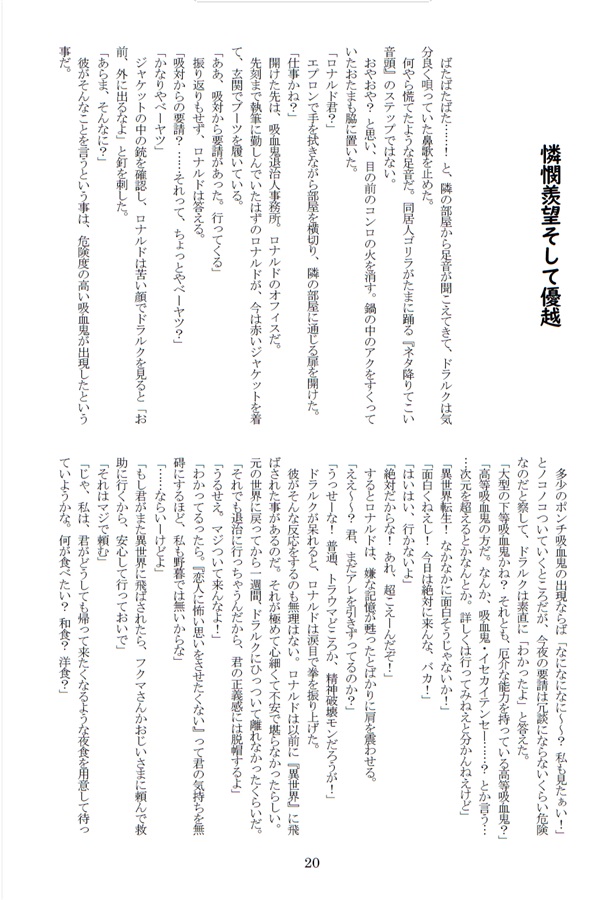 憐憫羨望そして優越
　ばたばたばた……！　と、隣の部屋から足音が聞こえてきて、ドラルクは気
分良く唄っていた鼻歌を止めた。
　何やら慌てたような足音だ。同居人ゴリラがたまに踊る『ネタ降りてこい
音頭』のステップではない。
　おやおや？　と思い、目の前のコンロの火を消す。鍋の中のアクをすくって
いたおたまも脇に置いた。
「ロナルド君？」
　エプロンで手を拭きながら部屋を横切り、隣の部屋に通じる扉を開けた。
「仕事かね？」
　開けた先は、吸血鬼退治人事務所。ロナルドのオフィスだ。
　先刻まで執筆に勤しんでいたはずのロナルドが、今は赤いジャケットを着
て、玄関でブーツを履いている。
「ああ、吸対から要請があった。行ってくる」
　振り返りもせず、ロナルドは答える。
「吸対からの要請？……それって、ちょっとやべーヤツ？」
「かなりやべーヤツ」
　ジャケットの中の銃を確認し、ロナルドは苦い顔でドラルクを見ると「お
前、外に出るなよ」と釘を刺した。
「あらま、そんなに？」
　彼がそんなことを言うという事は、危険度の高い吸血鬼が出現したという
事だ。
　多少のポンチ吸血鬼の出現ならば「なになになに～～？　私も見たぁい！」
とノコノコついていくところだが、今夜の要請は冗談にならないくらい危険
なのだと察して、ドラルクは素直に「わかったよ」と答えた。
「大型の下等吸血鬼かね？　それとも、厄介な能力を持っている高等吸血鬼？」
「高等吸血鬼の方だ。なんか、吸血鬼・イセカイテンセー……？　とか言う…
…次元を超えるとかなんとか。詳しくは行ってみねえと分かんねえけど」
「異世界転生！　なかなかに面白そうじゃないか！」
「面白くねえし！　今日は絶対に来んな、バカ！」
「はいはい、行かないよ」
「絶対だからな！　あれ、超こえーんだぞ！」
　するとロナルドは、嫌な記憶が甦ったとばかりに肩を震わせる。
「ええ～～？　君、まだアレを引きずってるのか？」
「うっせーな！　普通、トラウマどころか、精神破壊モンだろうが！」
　ドラルクが呆れると、ロナルドは涙目で拳を振り上げた。
　彼がそんな反応をするのも無理はない。ロナルドは以前に『異世界』に飛
ばされた事があるのだ。それが極めて心細くて不安で堪らなかったらしい。
元の世界に戻ってから一週間、ドラルクにひっついて離れなかったくらいだ。
「それでも退治に行っちゃうんだから、君の正義感には脱帽するよ」
「うるせえ。マジついて来んなよ！」
「わかってるったら。『恋人に怖い思いをさせたくない』って君の気持ちを無
碍にするほど、私も野暮では無いからな」
「……ならいーけどよ」
「もし君がまた異世界に飛ばされたら、フクマさんかおじいさまに頼んで救
助に行くから、安心して行っておいで」
「それはマジで頼む」
「じゃ、私は、君がどうしても帰って来たくなるような夜食を用意して待っ
ていようかな。何が食べたい？　和食？　洋食？」
20